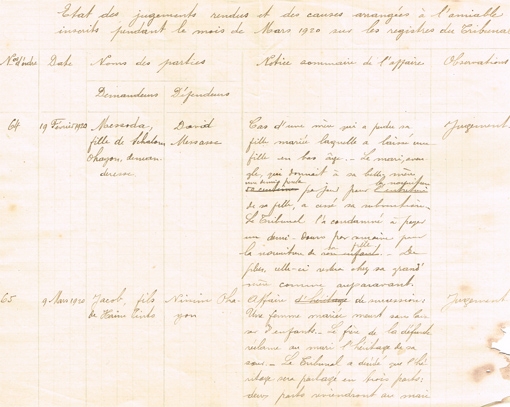 Etat des jugements rendus et des causes arrangées à l'amiable
inscrits pendant le mois de Mars 1920 sur les registres du Tribunal
Nos d'ordre Date Noms des parties Notice sommaire de l'affaire Observations
Demandeurs Défendeurs
64 19 Février 1920 Messoda, David Cas d'une mère qui a perdu sa Jugement.
fille de Chaloum Messase fille mariée laquelle a laissé une
Ohayon, deman- fille en bas âge. - Le mari, aveu-
deresse. gle, qui donnait à sa belle-mère
par jour pour la nourriture
de sa fille, a cessé sa rétribution.
Le Tribunal l'a condamné à payer
un demi-douro par semaine pour
la nourriture de sa fille - De
plus, celle-ci restera chez sa grand'
mère comme auparavant.
65 9 Mars 1920 Jacob, fils Nissim Oha- Affaire de successions Jugement
de Haïm yon Une femme mariée meurt sans lais-
ser d'enfants. - Le frère de la défunte
réclame au mari l'héritage de sa
soeur. - Le Tribunal a décidé que l'hé-
ritage sera partagé en trois parts:
deux parts reviendront au mari